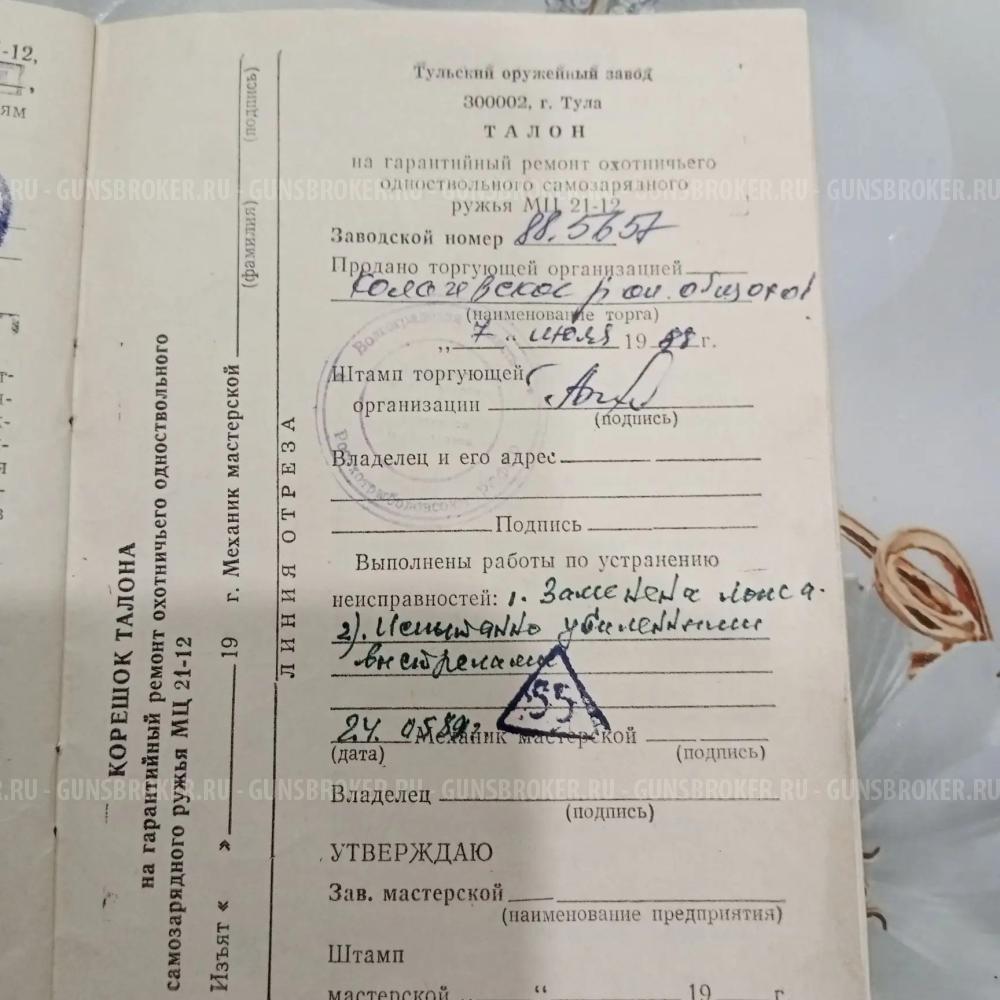 -12,
ям
Тульский оружейный завод
300002, г. Тула
ТАЛОН
на гарантийный ремонт охотничьего
одноствольного самозарядного
ружья МЦ 21-12
Заводской номер 88.5657
Продано торгующей организацией
рай. общохот
(наименование торга)
„ 7 “ июля 19 88 г.
Штамп торгующей
организации
(подпись)
Владелец и его адрес
Подпись
Выполнены работы по устранению
неисправностей: 1. Заменена
2). Испытанно усиленными
выстрелами
55
24. 05 89г.
Механик мастерской
(дата)
(подпись)
Владелец
(подпись)
УТВЕРЖДАЮ
Зав. мастерской
(наименование предприятия)
Штамп
мастерской „ “ 19 г.
ЛИНИЯ ОТРЕЗА
КОРЕШОК ТАЛОНА
на гарантийный ремонт охотничьего одноствольного
самозарядного ружья МЦ 21-12
Изъят « » 19 г. Механик мастерской
(фамилия) (подпись)
.RU - GUNSBROKER.RU - GUNSBROKER.RU - GUNSBROKER.RU - GUNSBROKER.RU - GUNSBROKER.RU
.RU - GUNSBROKER.RU - GUNSBROKER.RU - GUNSBROKER.RU - GUNSBROKER.RU - GUNSBROKER.RU